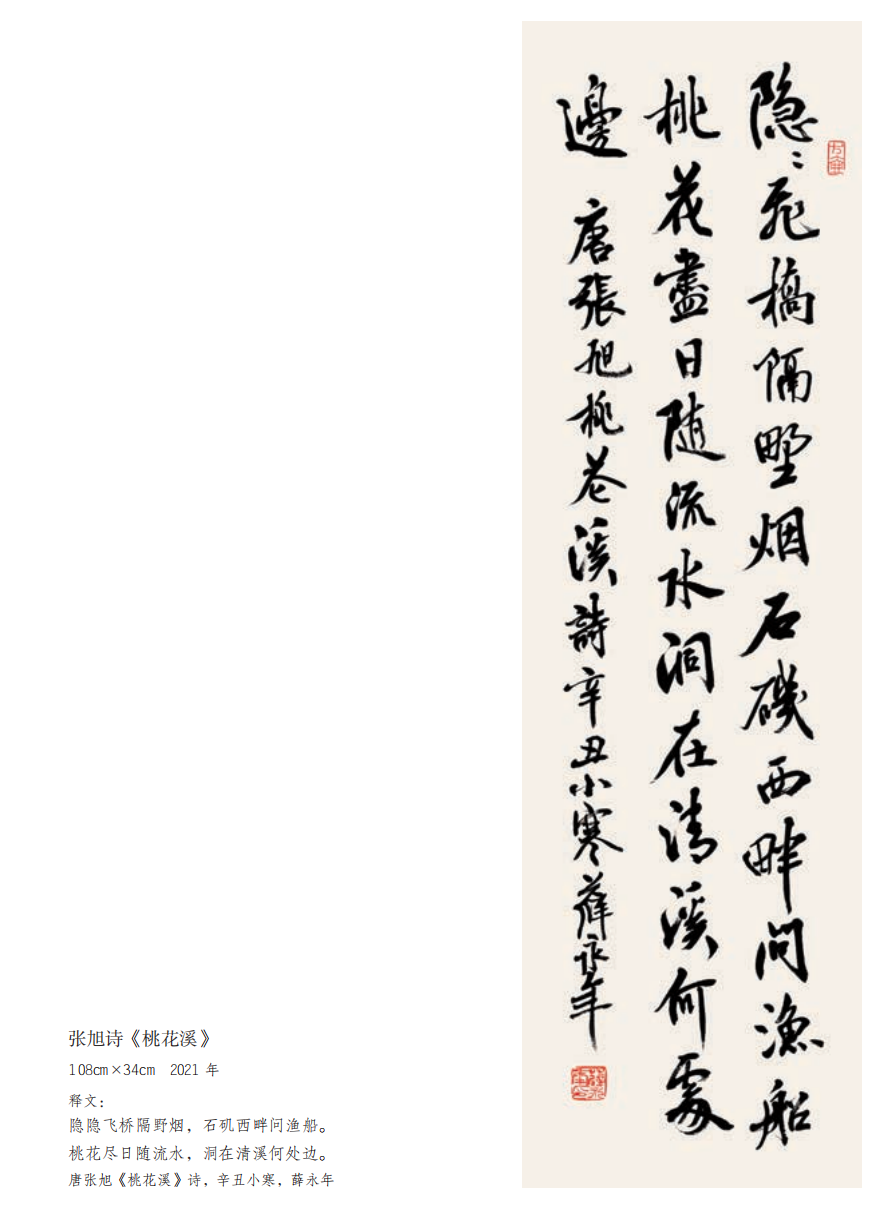 隐々飛橋隔野烟石磯西畔问渔船
桃花盡日随流水洞在清溪何處
邊 唐張旭桃花溪詩辛丑小寒薛永年
张旭诗《桃花溪》
108cm×34cm 2021 年
释文：
隐隐飞桥隔野烟，石矶西畔问渔船。
桃花尽日随流水，洞在清溪何处边。
唐张旭《桃花溪》诗，辛丑小寒，薛永年